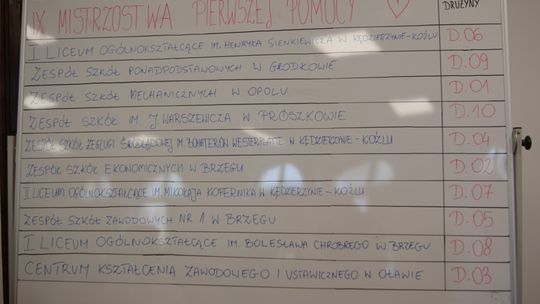 IX MISTRZOSTWA PIERWSZEJ POMOCY ♡ DRUŻYNY
I LICEUM OGÓLNOKSZTAŁCĄCE IM. HENRYKA SIENKIEWICZA W KĘDZIERZYNIE-KOŹLU D.06
ZESPÓŁ SZKÓŁ PONADPODSTAWOWYCH W GRODKOWIE D.09
ZESPÓŁ SZKÓŁ MECHANICZNYCH W OPOLU D.01
ZESPÓŁ SZKÓŁ IM. J WARSZEWICZA W PRÓSZKOWIE D.10
ZESPÓŁ SZKÓŁ ŻEGLUGI ŚRÓDLĄDOWEJ IM. BOHATERÓW WESTERPLATTE W KĘDZIERZYNIE-KOŹLU D.04
ZESPÓŁ SZKÓŁ EKONOMICZNYCH W BRZEGU D.02
II LICEUM OGÓLNOKSZTAŁCĄCE IM. MIKOŁAJA KOPERNIKA W KĘDZIERZYNIE-KOŹLU D.07
ZESPÓŁ SZKÓŁ ZAWODOWYCH NR 1 W BRZEGU D.05
I LICEUM OGÓLNOKSZTAŁCĄCE IM. BOLESŁAWA CHROBREGO W BRZEGU D.08
CENTRUM KSZTAŁCENIA ZAWODOWEGO I USTAWICZNEGO W OŁAWIE D.03